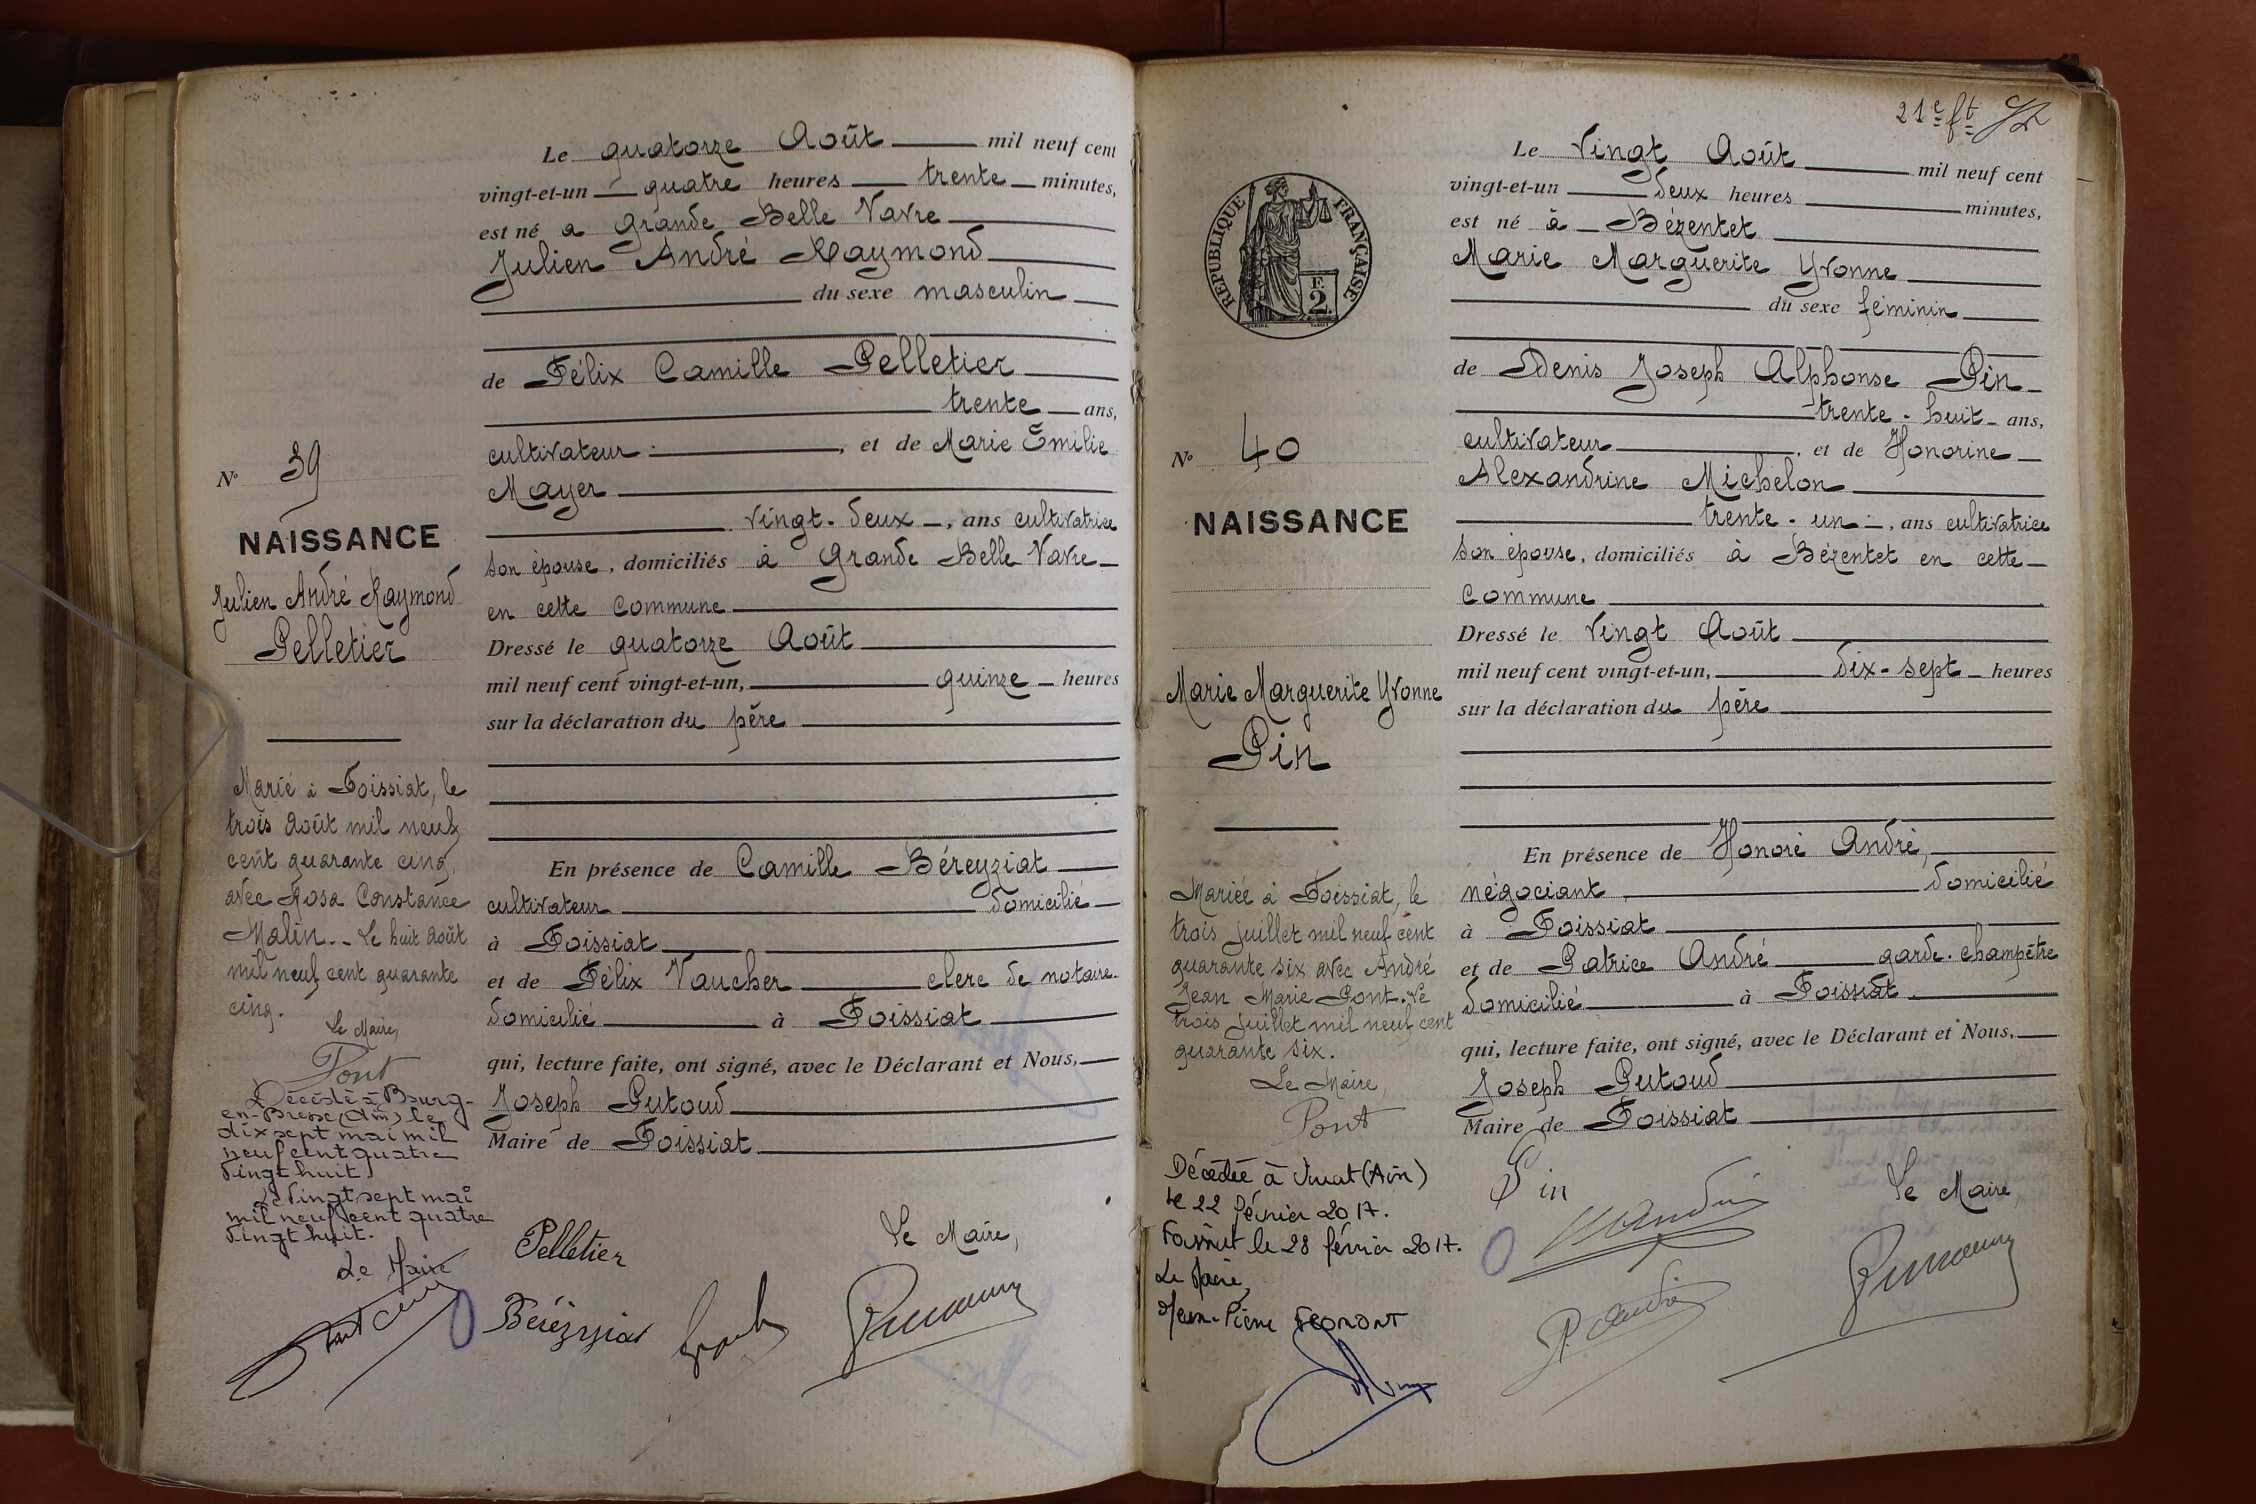 Le quatorze Août mil neuf cent
vingt-et-un quatre heures trente minutes,
est né a Grande Belle Vavre
Julien André Raymond
du sexe masculin
de Félix Camille Pelletier
trente ans,
cultivateur, et de Marie Emilie
Mayer
vingt-deux, ans cultivatrice
son épouse, domiciliés à Grande Belle Vavre
en cette commune
Dressé le quatorze Août
mil neuf cent vingt-et-un, quinze heures
sur la déclaration du père
En présence de Camille Béreyziat
cultivateur domicilié
à Foissiat
et de Félix Vaucher clerc de notaire
domicilié à Foissiat
qui, lecture faite, ont signé, avec le Déclarant et Nous,
Joseph Putoud
Maire de Foissiat
Pelletier
Le Maire,
Béréyziat
No 39
NAISSANCE
Julien André Raymond
Pelletier
Marié à Foissiat, le
trois Août mil neuf
cent quarante cinq,
avec Rosa Constance
Malin. - Le huit Août
mil neuf cent quarante
cinq.
Le Maire,
Pont
Décédé à Bourg-
en-Bresse (Ain) le
dix sept mai mil
neuf cent quatre
vingt huit
Le vingt sept mai
mil neuf cent quatre
vingt huit.
Le Maire
21e ft
REPUBLIQUE FRANÇAISE
F.
2
No 40
NAISSANCE
Marie Marguerite Yvonne
Pin
Mariée à Foissiat, le
trois Juillet mil neuf cent
quarante six avec André
Jean Marie Pont. Le
trois Juillet mil neuf cent
quarante six.
Le Maire
Pont
Décédée à Viriat (Ain)
le 22 février 2017.
Foissiat le 28 février 2017.
Le Maire,
Jean-Pierre
Le Vingt Août mil neuf cent
vingt-et-un deux heures minutes,
est né à Bézentet
Marie Marguerite Yvonne
du sexe féminin
de Denis Joseph Alphonse Pin
trente-huit ans,
cultivateur, et de Honorine
Alexandrine Michelon
trente-un, ans cultivatrice
son épouse, domiciliés à Bézentet en cette
commune
Dressé le vingt Août
mil neuf cent vingt-et-un, dix-sept heures
sur la déclaration du père
En présence de Honoré André,
négociant, domicilié
à Foissiat
et de Patrice André garde-champêtre
domicilié à Foissiat
qui, lecture faite, ont signé, avec le Déclarant et Nous,
Joseph Putoud
Maire de Foissiat
Pin
Le Maire,
P. André